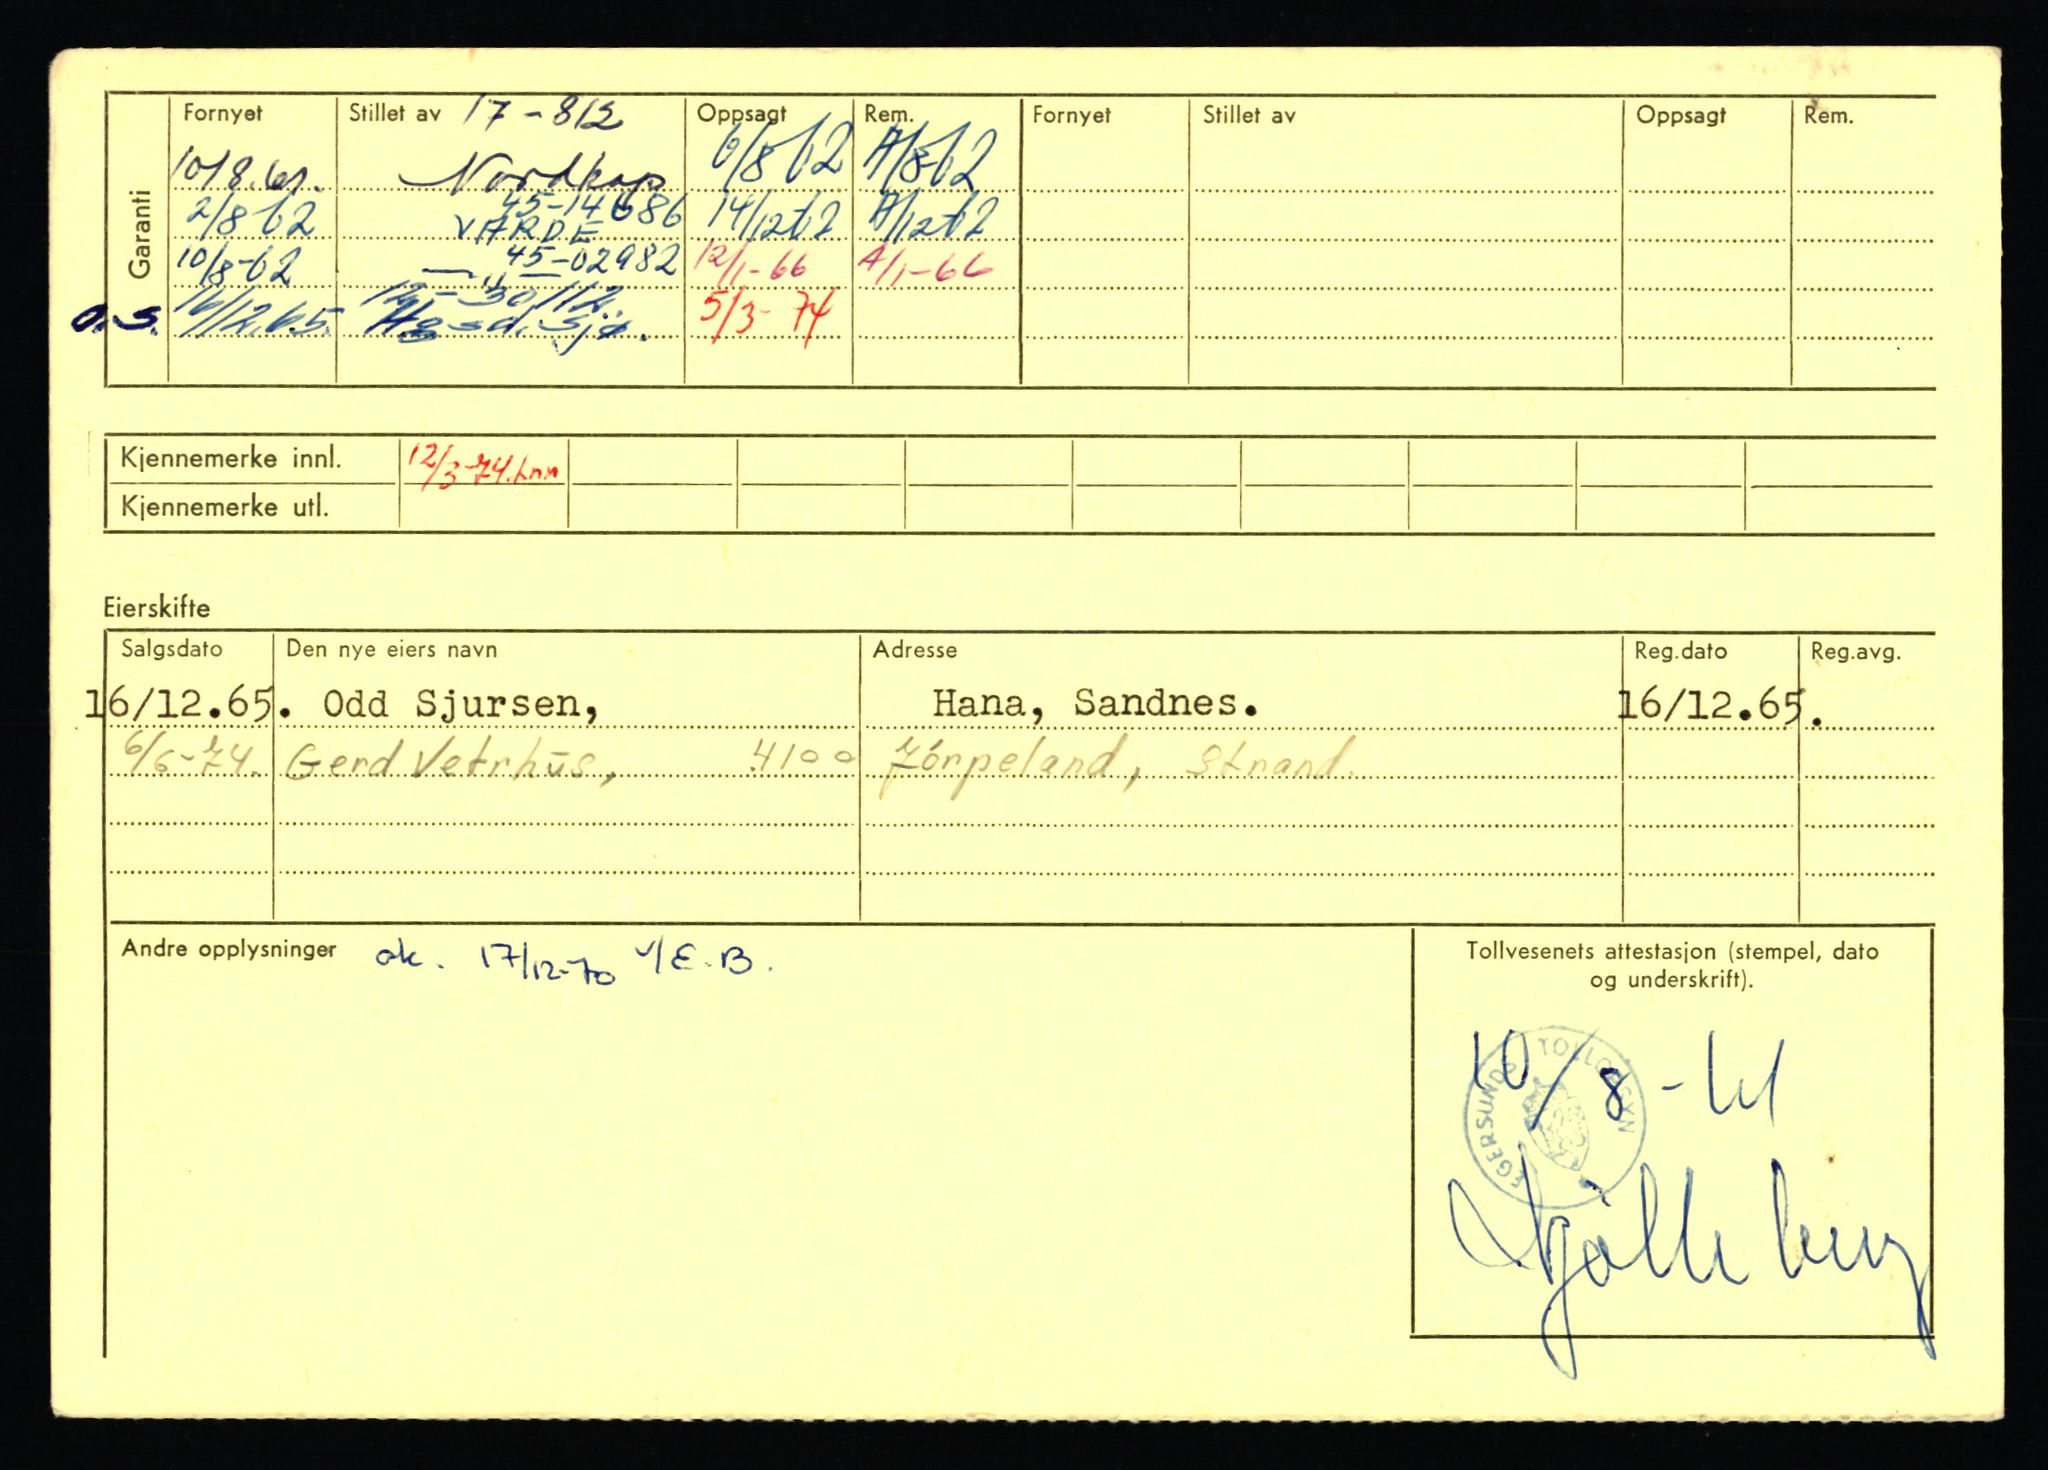 Garanti
Fornyet Stillet av 17-812 Oppsagt Rem. Fornyet Stillet av Oppsagt Rem.
10/8.61. Nordkap 6/8 62 A/8-62
2/8 62 45-14686 VARDE 14/12 62 A/12 62
10/8-62 — " — 45-02982 12/1-66 A/1-66
a.s. 16/12.65. 5/3-74
Kjennemerke innl. 12/3-74.
Kjennemerke utl.
Eierskifte
Salgsdato Den nye eiers navn Adresse Reg.dato Reg.avg.
16/12.65. Odd Sjursen, Hana, Sandnes. 16/12.65.
6/6-74. Gerd Vetrhus, 4100 Jørpeland, Strand.
Andre opplysninger ok. 17/12-70 v/E.B.
Tollvesenets attestasjon (stempel, dato
og underskrift).
EGERSUNDS TOLLOPSYN
10/8-61